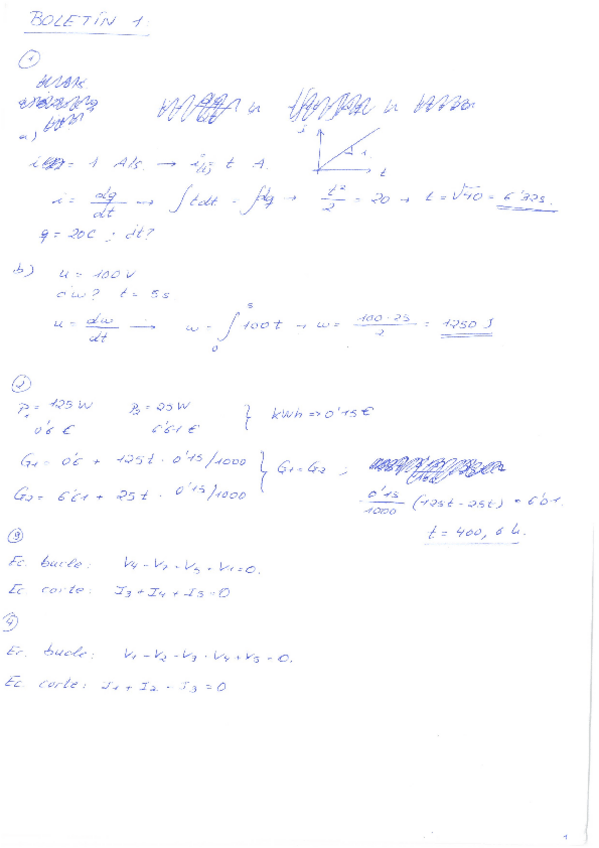 BOLETÍN 1.
1
a)
i
= 1 A/s. → i(t) = t A.
t
i = dq/dt → ∫ t dt = ∫ dq → t²/2 = 20 → t = √40 = 6'32 s.
q = 20 C ; ¿t?
b) u = 100 V
¿w? t = 5 s
u = dw/dt → w = ∫₀⁵ 100 t → w = 100·25/2 = 1250 J
2
P₁ = 125 W P₂ = 25 W } kWh => 0'15 €
0'6 € 6'61 €
G₁ = 0'6 + 125t · 0'15/1000 } G₁ = G₂ ;
G₂ = 6'61 + 25t · 0'15/1000
0'15/1000 (125t - 25t) = 6'01.
t = 400,6 h.
3
Ec. bucle: V₄ - V₂ - V₃ + V₁ = 0.
Ec corte: I₃ + I₄ + I₅ = 0
4
Ec. bucle: V₁ - V₂ - V₃ - V₄ + V₅ = 0.
Ec. corte: I₁ + I₂ - I₃ = 0
1